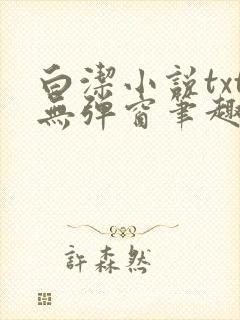 白潔小説txt
無彈窗筆趣
許森然